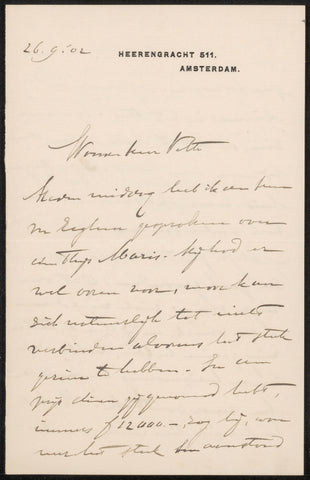 26.9.02
HEERENGRACHT 511.
AMSTERDAM.
Waarde heer Veth
Heden middag heb ik den heer
van Eeghen gesproken over
den Thijs Maris. Hij had er
wel ooren voor, maar kan
zich natuurlijk tot niets
verbinden alvorens het stuk
gezien te hebben. De
prijs dien gij genoemd hebt,
immers f 12000.- zag hij, voor
het stuk